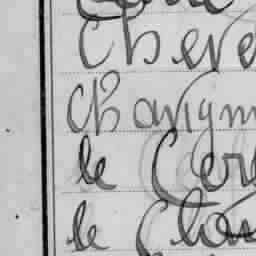 Cheve
Chavign
le Cer
le Cha